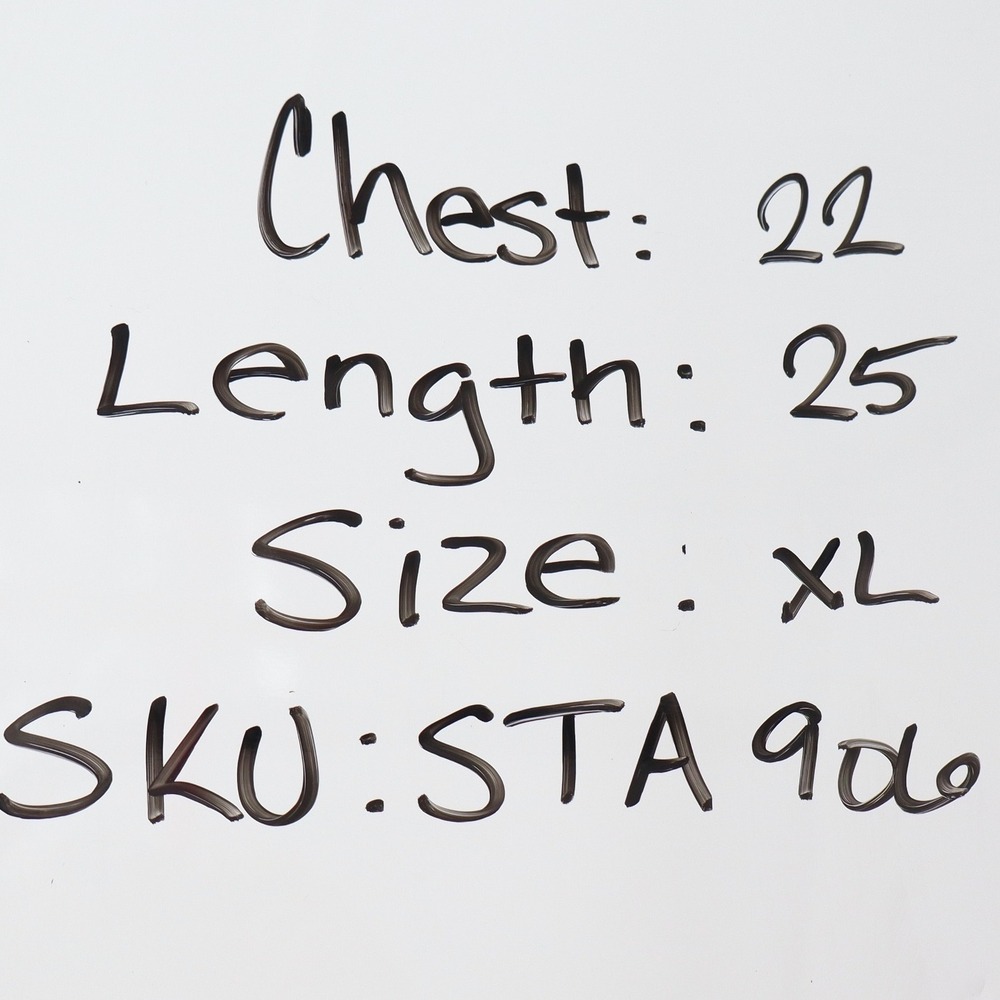 Chest: 22
Length: 25
Size: XL
SKU: STA 906